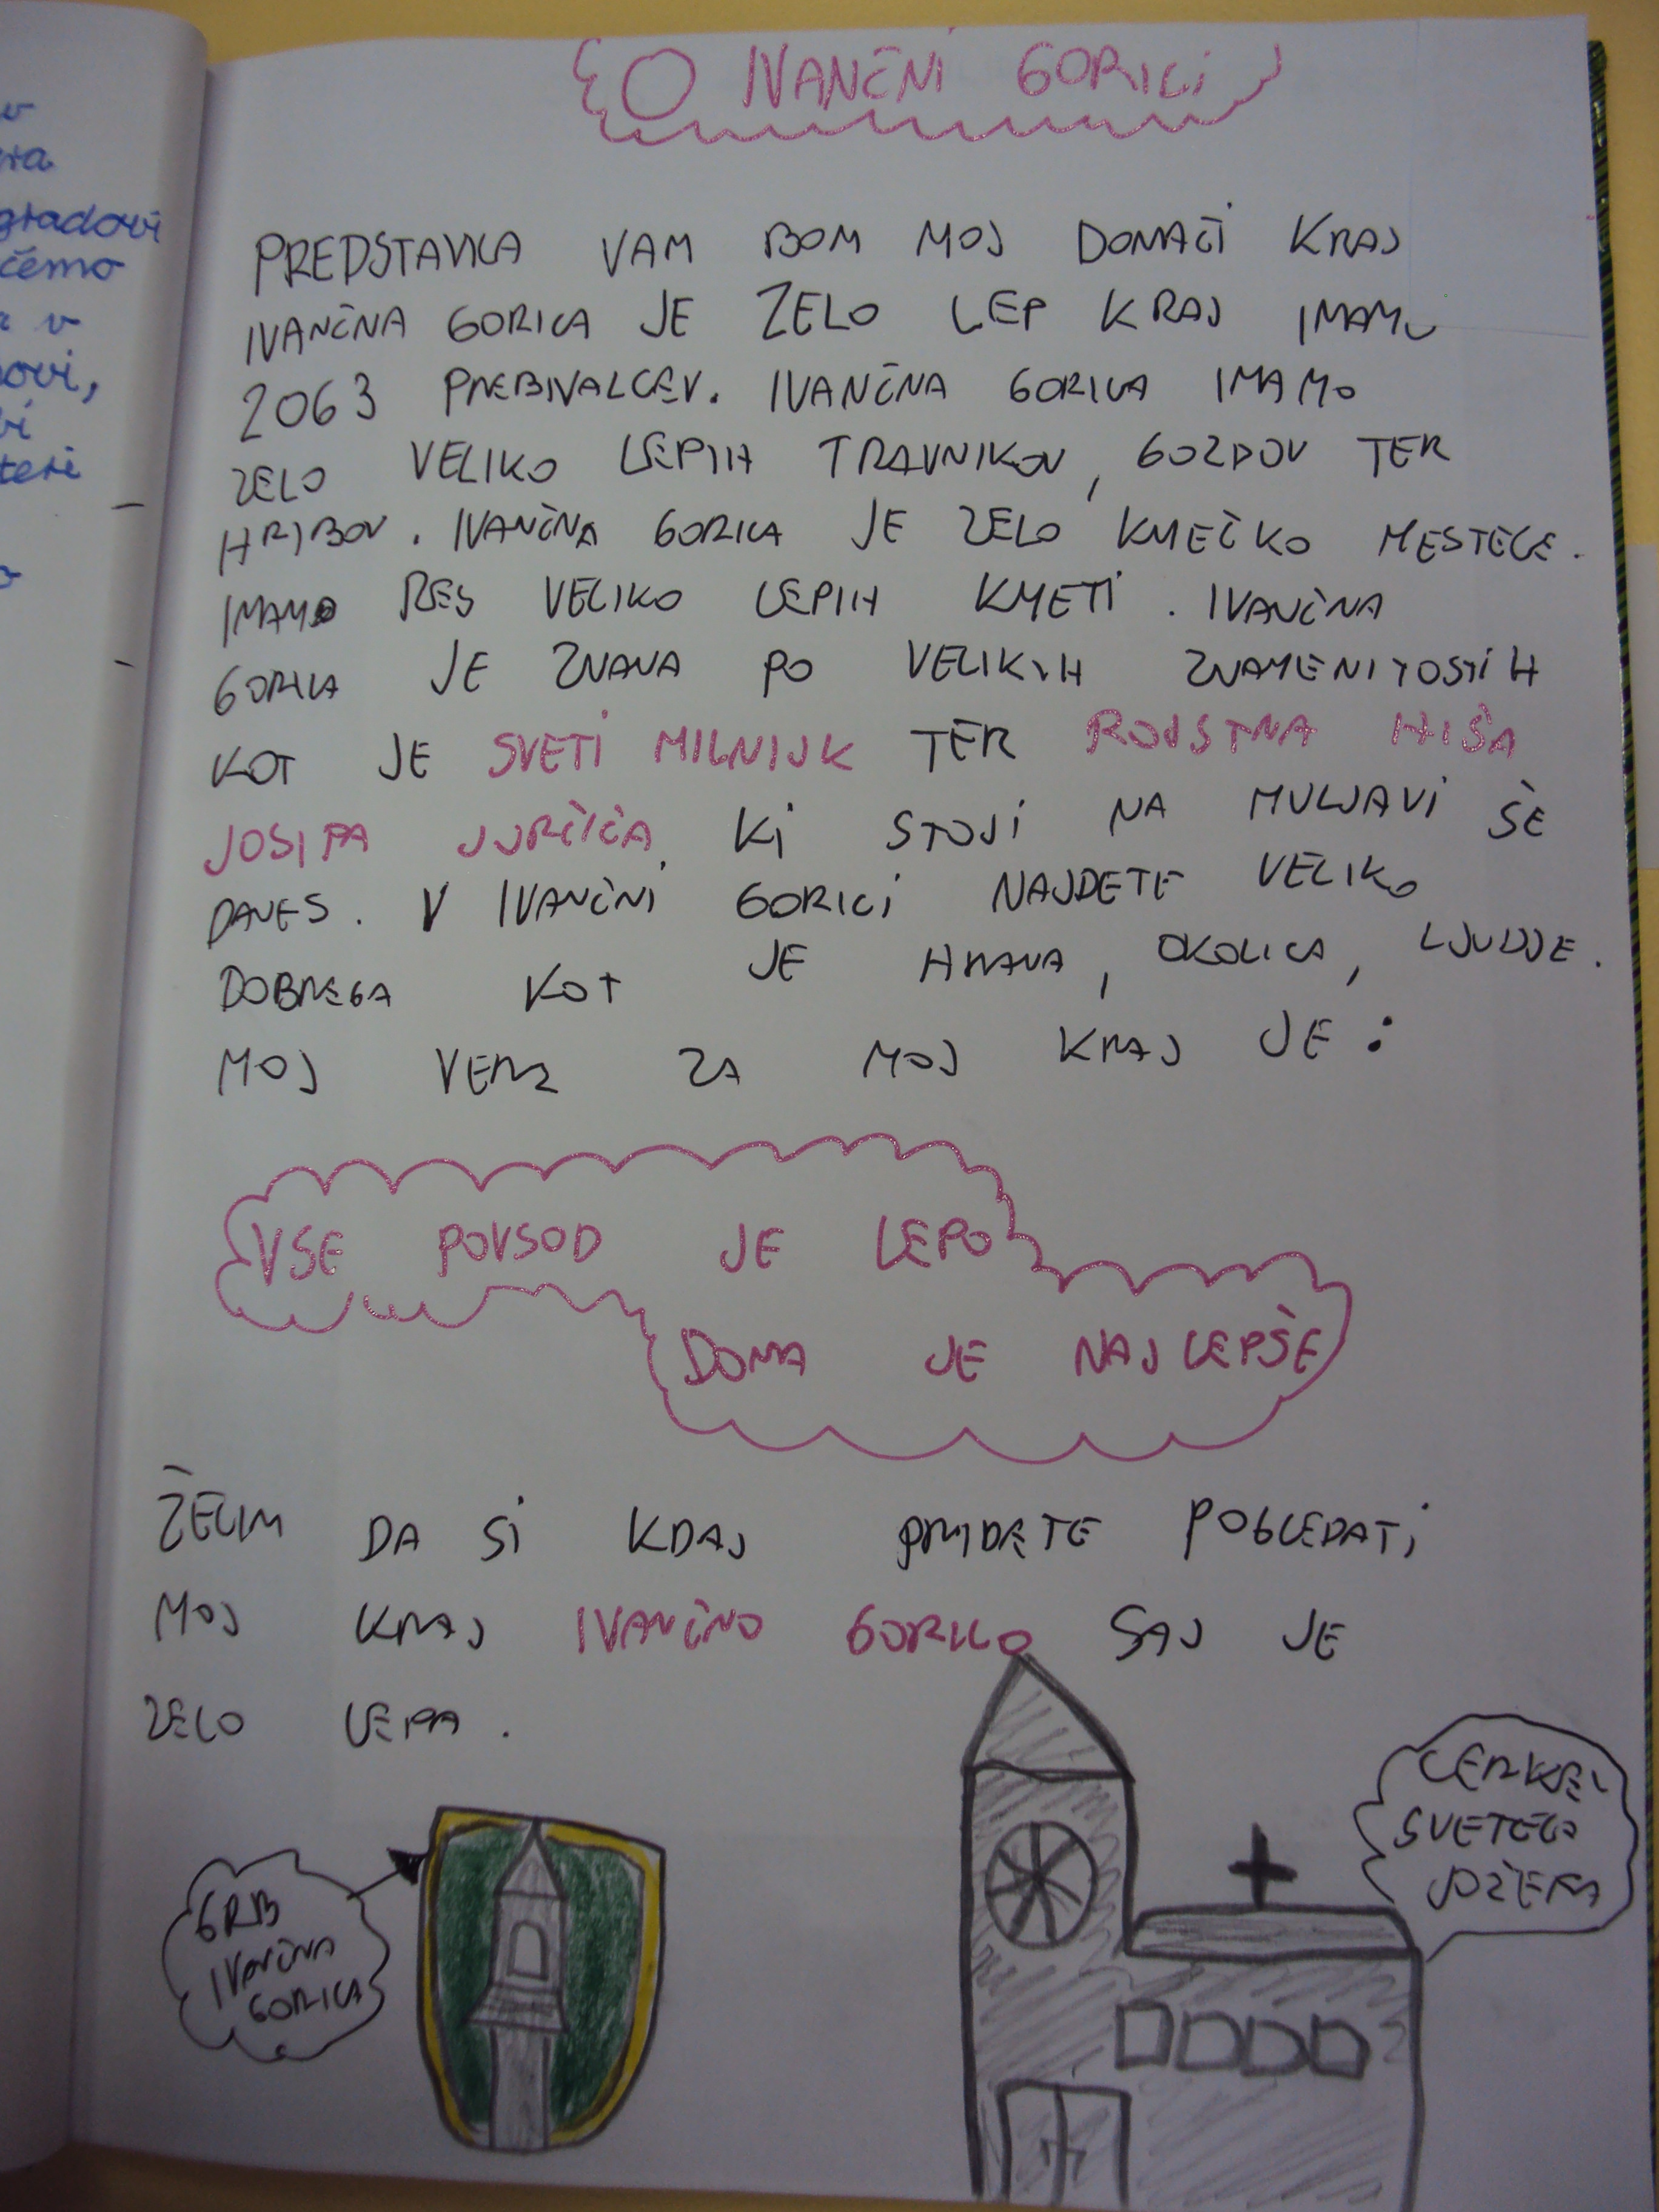 O IVANČNI GORICI
PREDSTAVILA VAM BOM MOJ DOMAČI KRAJ
IVANČNA GORICA JE ZELO LEP KRAJ IMAMO
2063 PREBIVALCEV. IVANČNA GORICA IMAMO
ZELO VELIKO LEPIH TRAVNIKOV, GOZDOV TER
HRIBOV. IVANČNA GORICA JE ZELO KMEČKO MESTECE.
IMAMO RES VELIKO LEPIH KMETI. IVANČNA
GORICA JE ZNANA PO VELIKIH ZNAMENITOSTIH
KOT JE SVETI MILNIJK TER ROJSTNA HIŠA
JOSIPA JURČIČA KI STOJI NA MULJAVI ŠE
DANES. V IVANČNI GORICI NAJDETE VELIKO
DOBREGA KOT JE HRANA, OKOLICA, LJUDJE.
MOJ VERZ ZA MOJ KRAJ JE:
VSE POVSOD JE LEPO
DOMA JE NAJLEPŠE
ŽELIM DA SI KDAJ PRIDETE POGLEDATI
MOJ KRAJ IVANČNO GORICO SAJ JE
ZELO LEPA.
GRB
IVANČNA
GORICA
CERKEV
SVETEGA
JOŽEFA
gradovi
čemo
v
ovi,
teri